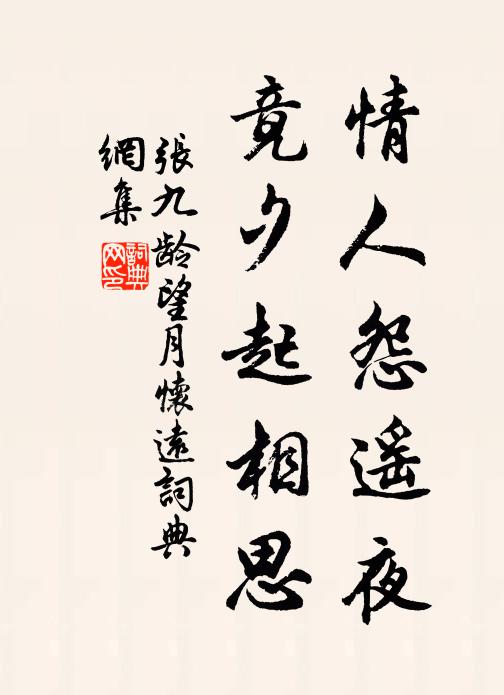 情人怨遥夜
竟夕起相思
張九龄望月懷遠詞典
網集
詞典
网印